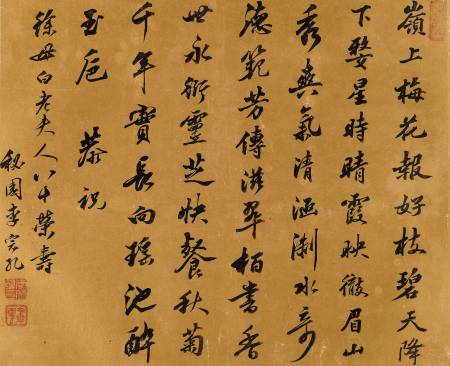 嶺上梅花報好枝碧天降
下婺星時晴霞映徹眉山
秀爽氣清涵淛水奇
德範芳傳滋翠栢書香
世永衍靈芝快餐秋菊
千年實長向瑤池醉
玉卮 恭祝
徐母白老夫人八十榮壽
秘園李宗孔